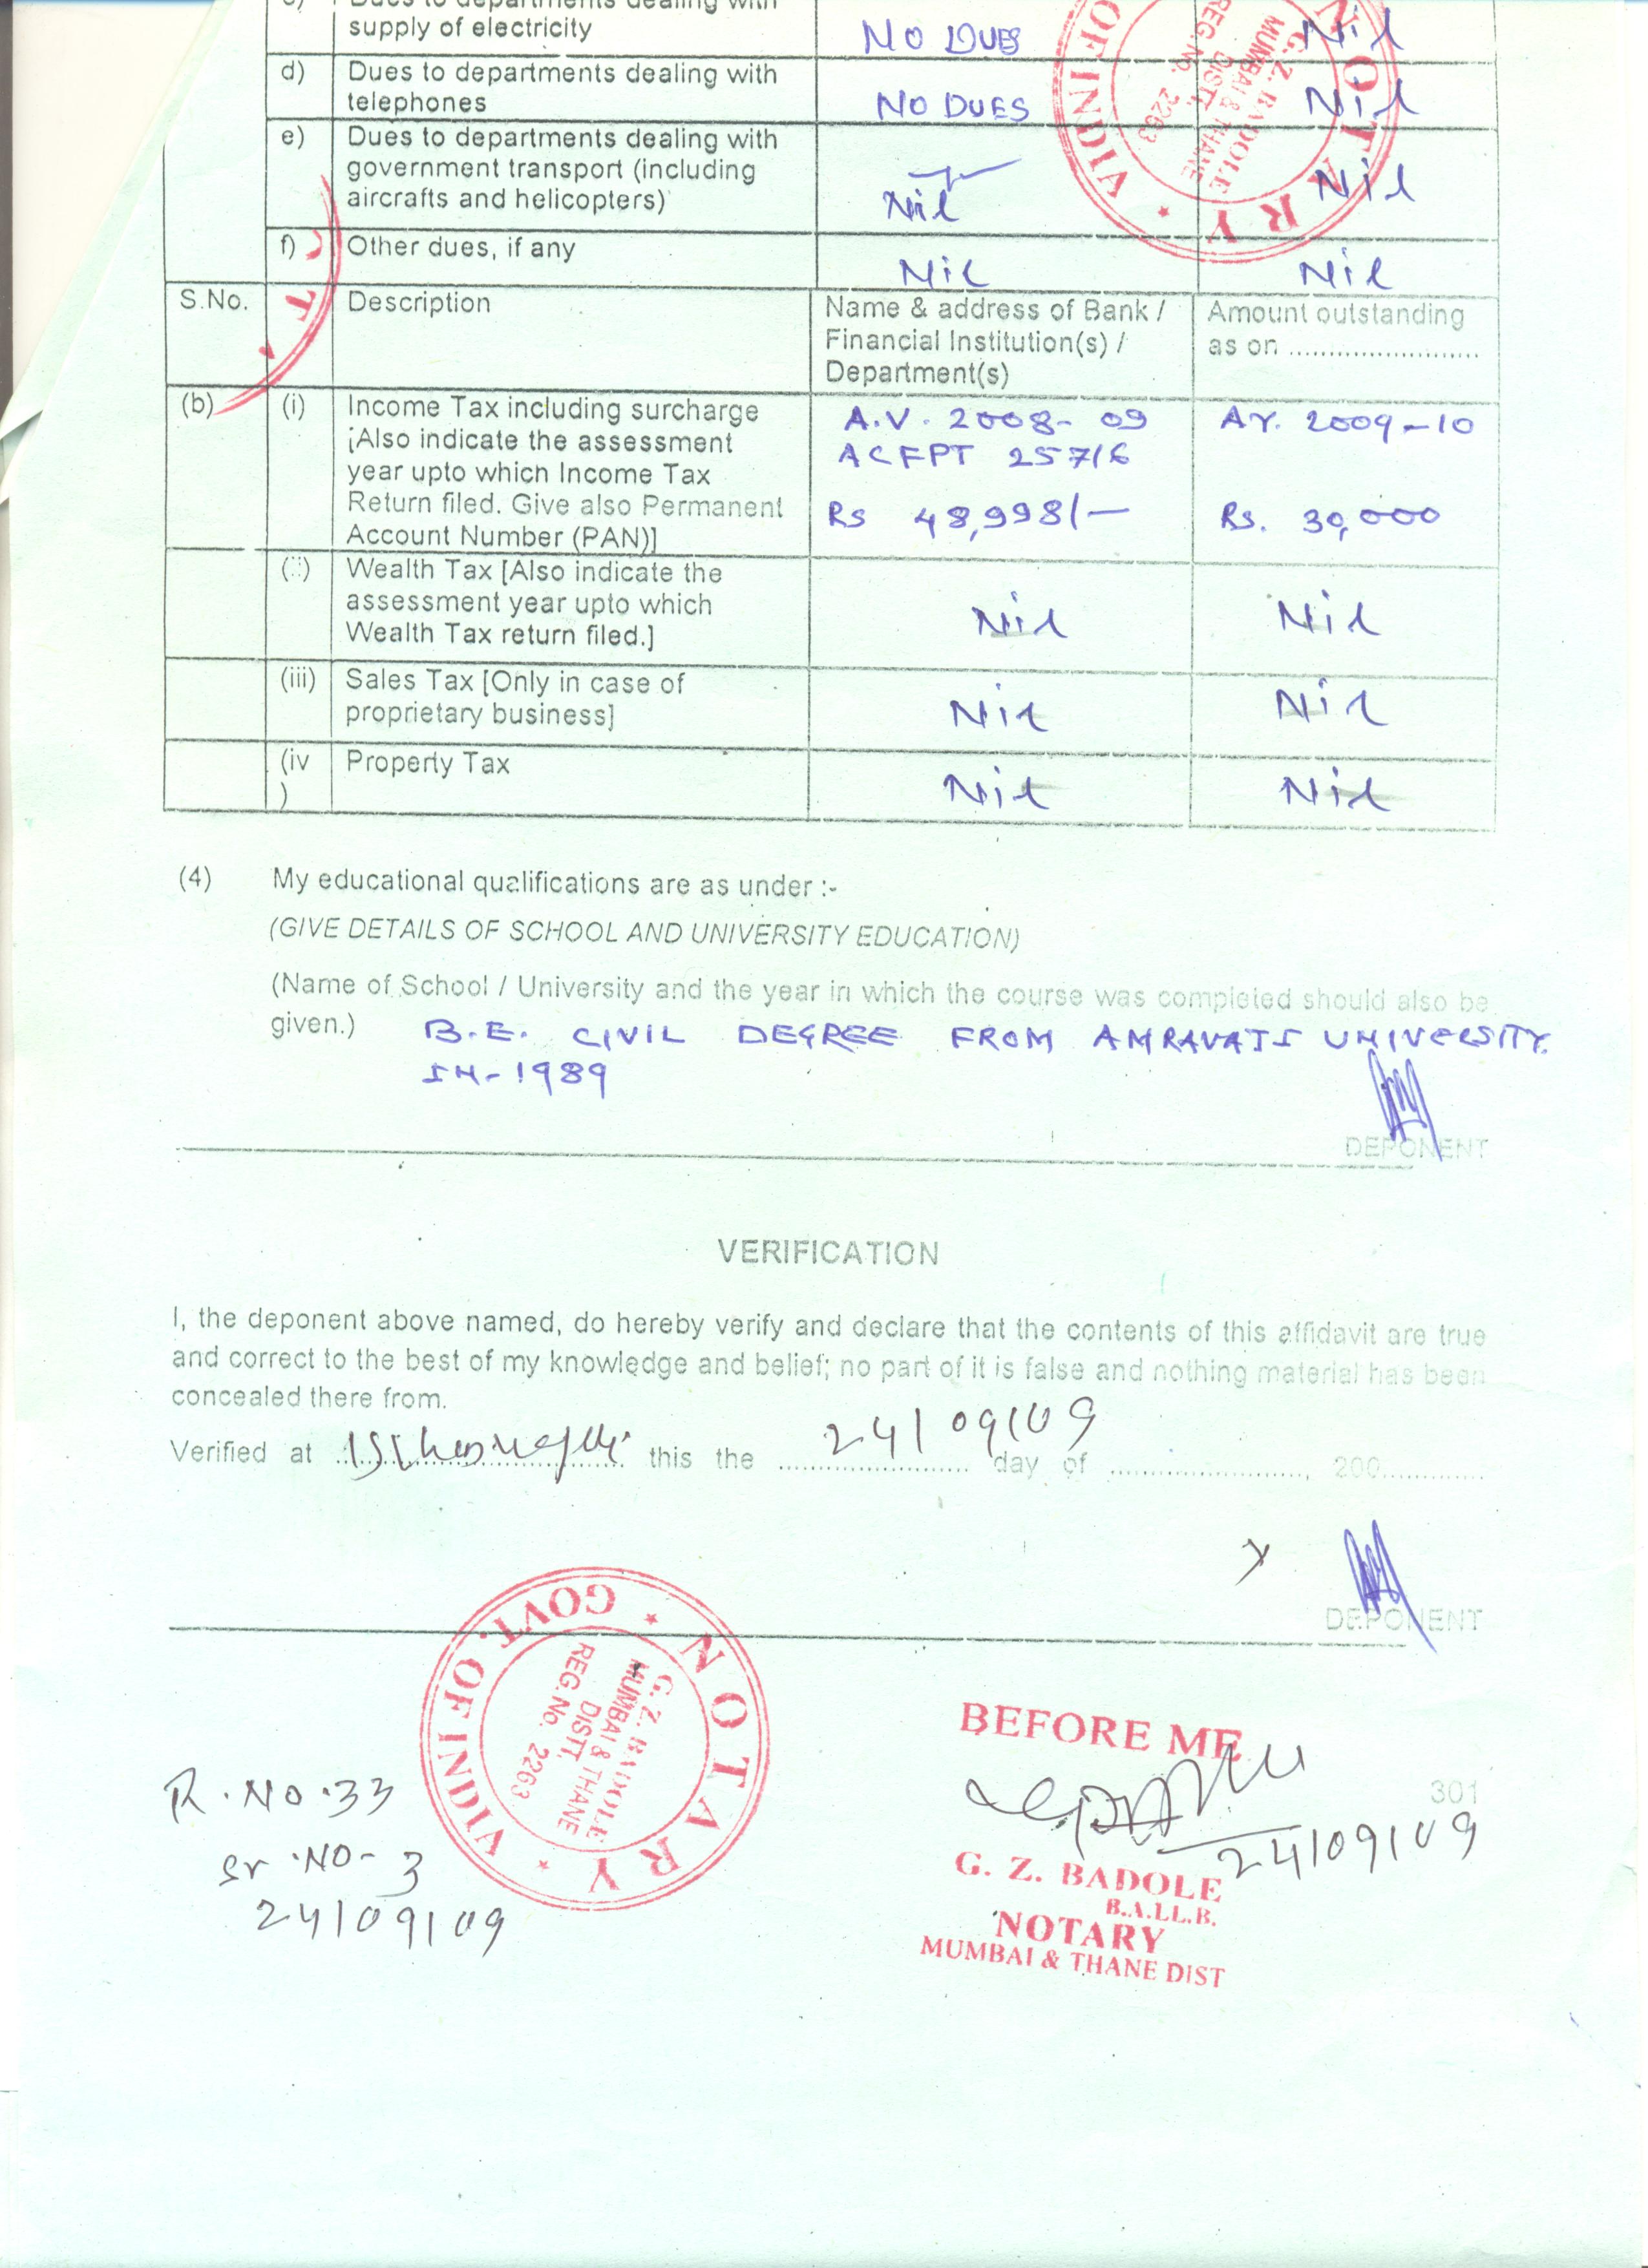 c) Dues to departments dealing with
supply of electricity NO DUES Nil
d) Dues to departments dealing with
telephones NO DUES Nil
e) Dues to departments dealing with
government transport (including
aircrafts and helicopters) Nil Nil
f) Other dues, if any Nil Nil
S.No. Description Name & address of Bank / Amount outstanding
Financial Institution(s) / as on ..........................
Department(s)
(b) (i) Income Tax including surcharge A.Y. 2008-09 AY. 2009-10
[Also indicate the assessment ACFPT 25716
year upto which Income Tax
Return filed. Give also Permanent Rs 48,998/- Rs. 30,000
Account Number (PAN)]
(ii) Wealth Tax [Also indicate the
assessment year upto which Nil Nil
Wealth Tax return filed.]
(iii) Sales Tax [Only in case of
proprietary business] Nil Nil
(iv) Property Tax
Nil Nil
(4) My educational qualifications are as under :-
(GIVE DETAILS OF SCHOOL AND UNIVERSITY EDUCATION)
(Name of School / University and the year in which the course was completed should also be
given.) B.E. CIVIL DEGREE FROM AMRAVATI UNIVERSITY
IN-1989
DEPONENT
VERIFICATION
I, the deponent above named, do hereby verify and declare that the contents of this affidavit are true
and correct to the best of my knowledge and belief; no part of it is false and nothing material has been
concealed there from.
Verified at this the 24/09/09 day of ........................, 200.............
DEPONENT
NOTARY * GOVT. OF INDIA *
G. Z. BADOLE
MUMBAI & THANE
DISTT.
REG.No. 2263
BEFORE ME
301
24/09/09
G. Z. BADOLE
B.A.LL.B.
NOTARY
MUMBAI & THANE DIST
R.NO.33
Sr.NO-3
24/09/09
NOTARY OF INDIA
G. Z. BADOLE
MUMBAI & THANE
DISTT.
REG.No. 2263